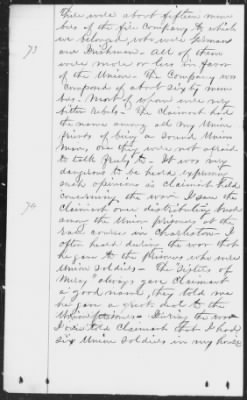 There were about fifteen mem
bers of the fire company, to which
we belonged, who were Germans
73 and Irishmen - All of them
were more or less in favor
of the Union - The Company was
composed of about sixty mem
bers. Most of whom were very
bitter Rebels - The Claimant had
the name among all my Union
friends of being a sound Union
man, one they were not afraid
to talk freely to - It was very
dangerous to be heard expressing
such opinions as claimant held
74 concerning the war I saw the
Claimant once distributing bread
among the Union prisoners at the
race course in Charleston - I
often heard during the war that
he gave to the prisoners who were
Union soldiers - The "Sisters of
Mercy" always gave Claimant
a good name, they told me
he gave a great deal to the
Union prisoners - During the war
I was told Claimant that I had
six Union soldiers in my house